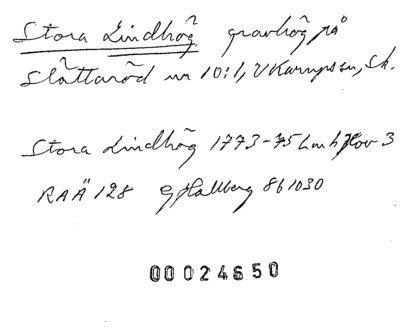 Stora Lindhög gravhög på
Slättaröd nr 10:1, V Karups sn, Sk.
Stora Lindhög 1773-75 Lmh Hov 3
RAÄ 128 G Hallberg 861030
00024650